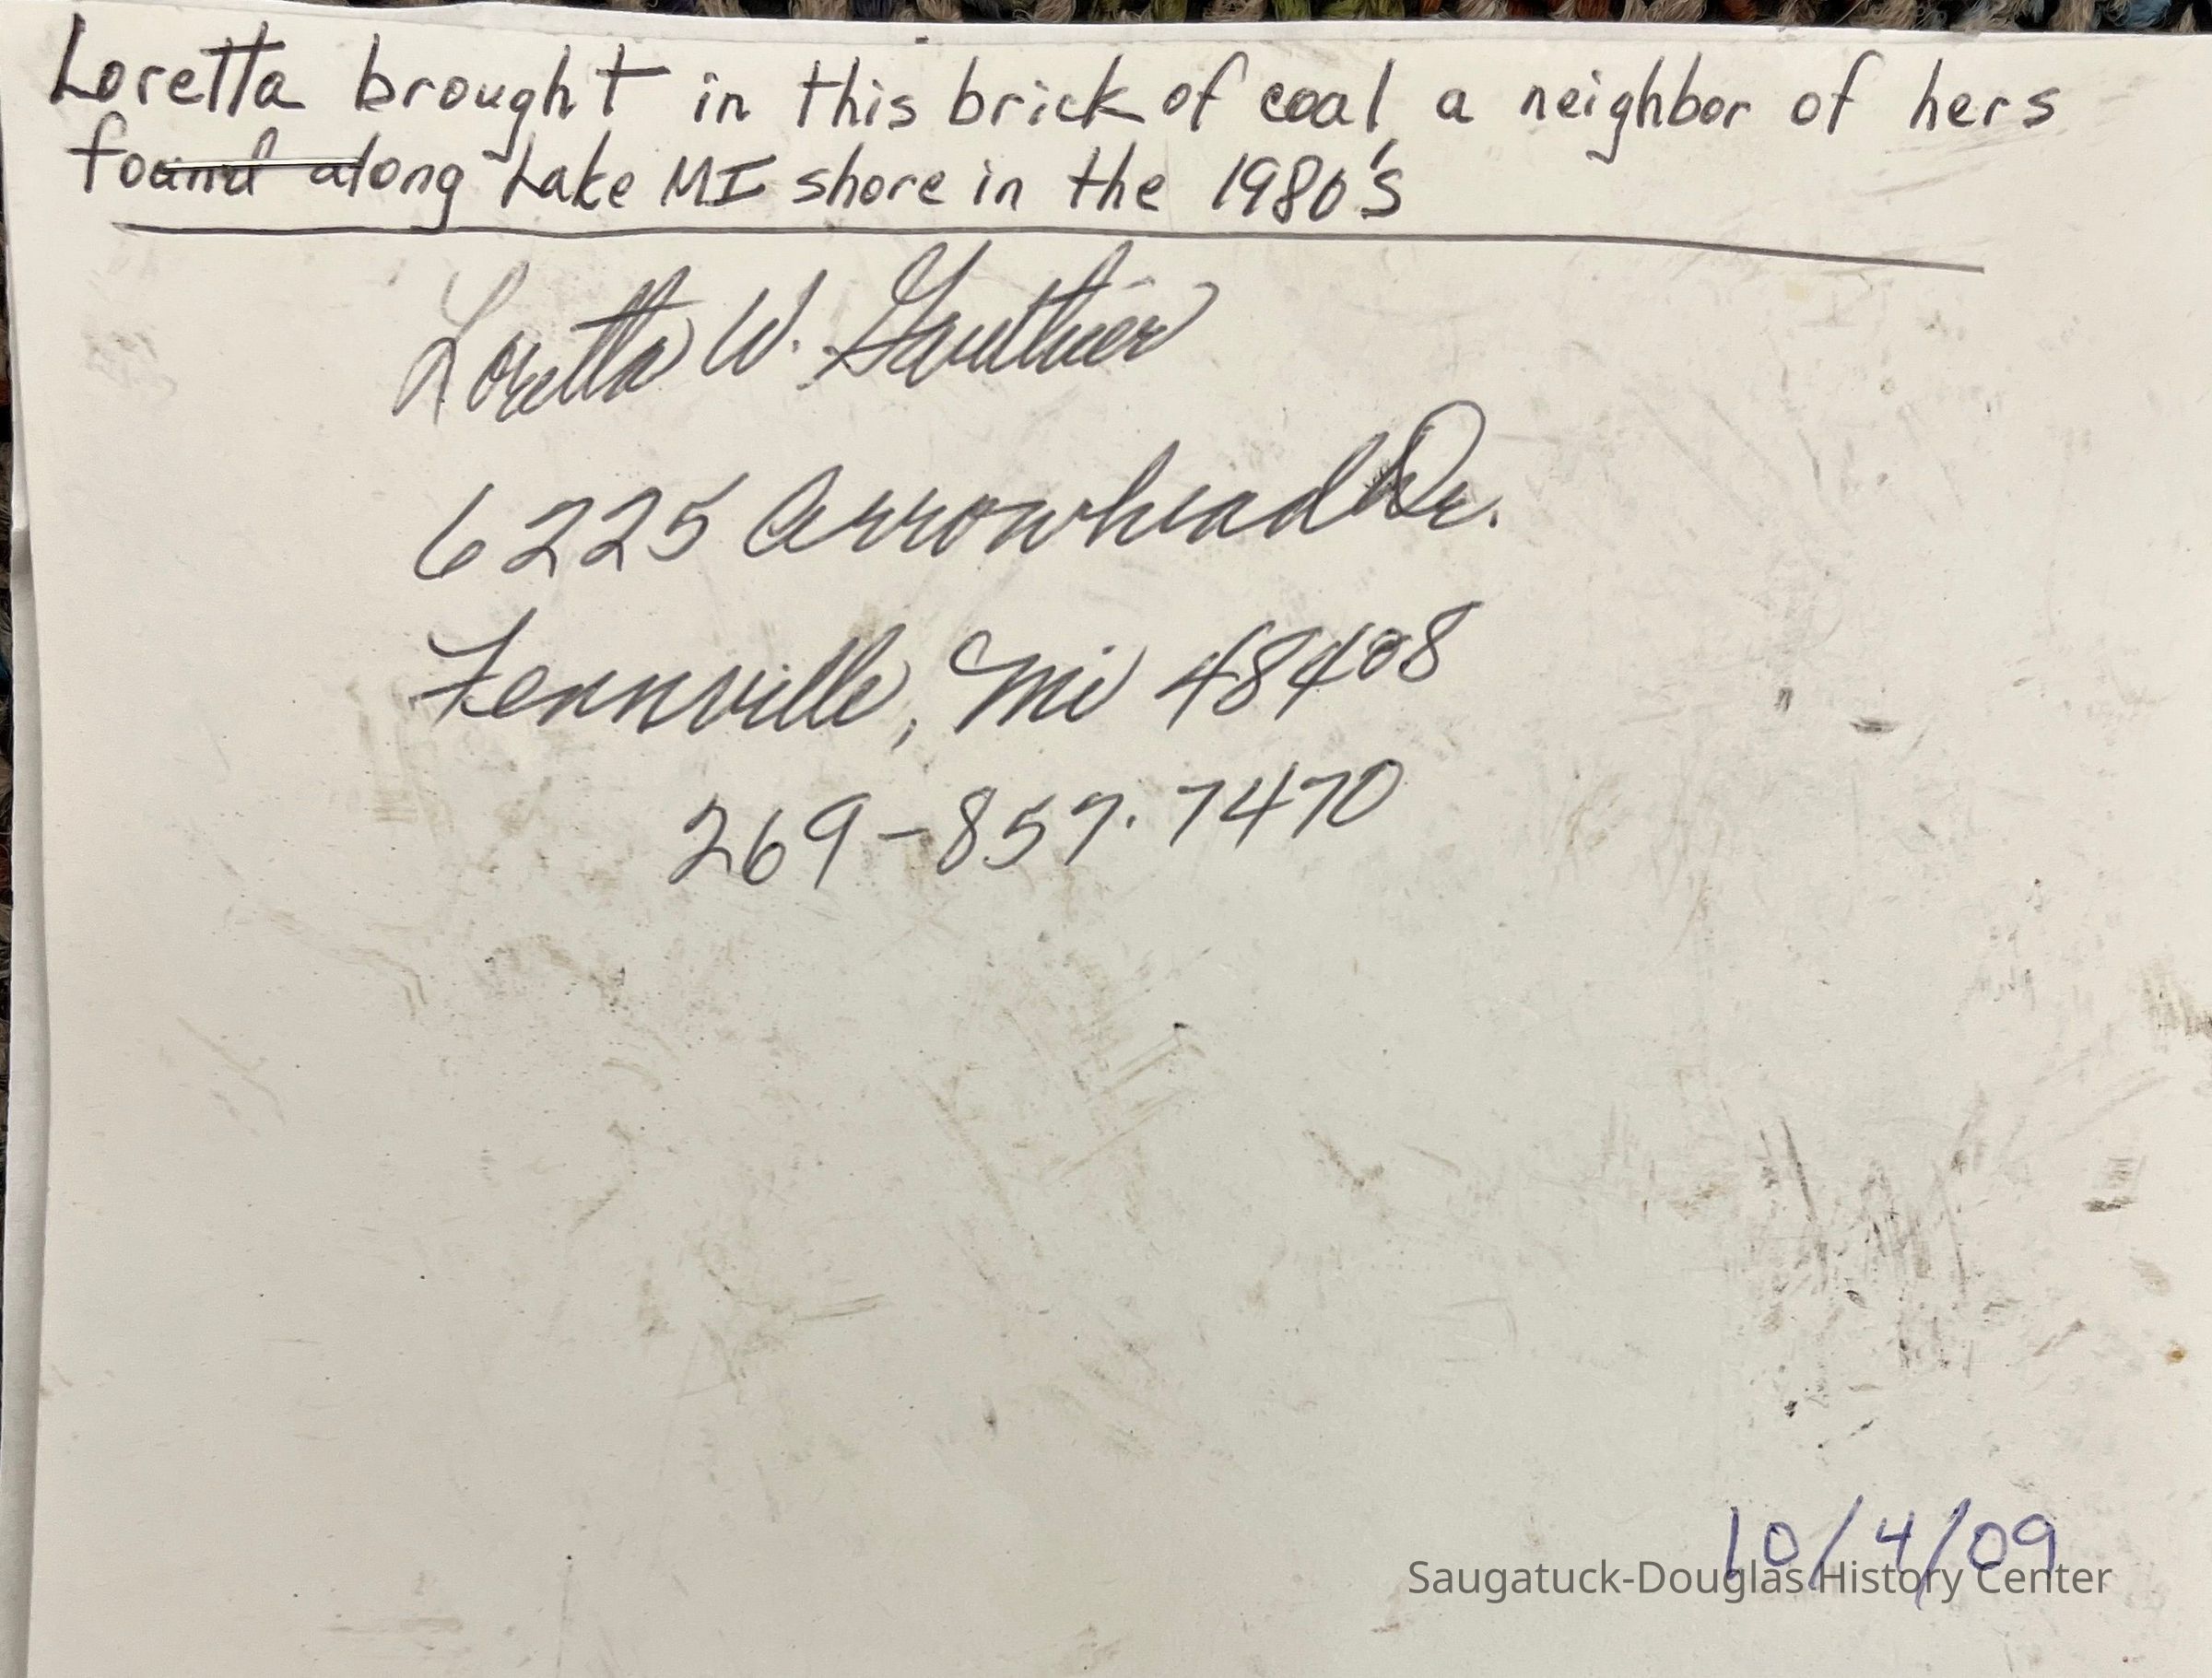 Loretta brought in this brick of coal a neighbor of hers
found along Lake MI shore in the 1980's
Loretta W. Gauthier
6225 Arrowhead Dr.
Fennville, Mi 48408
269-857.7470
10/4/09
Saugatuck-Douglas History Center